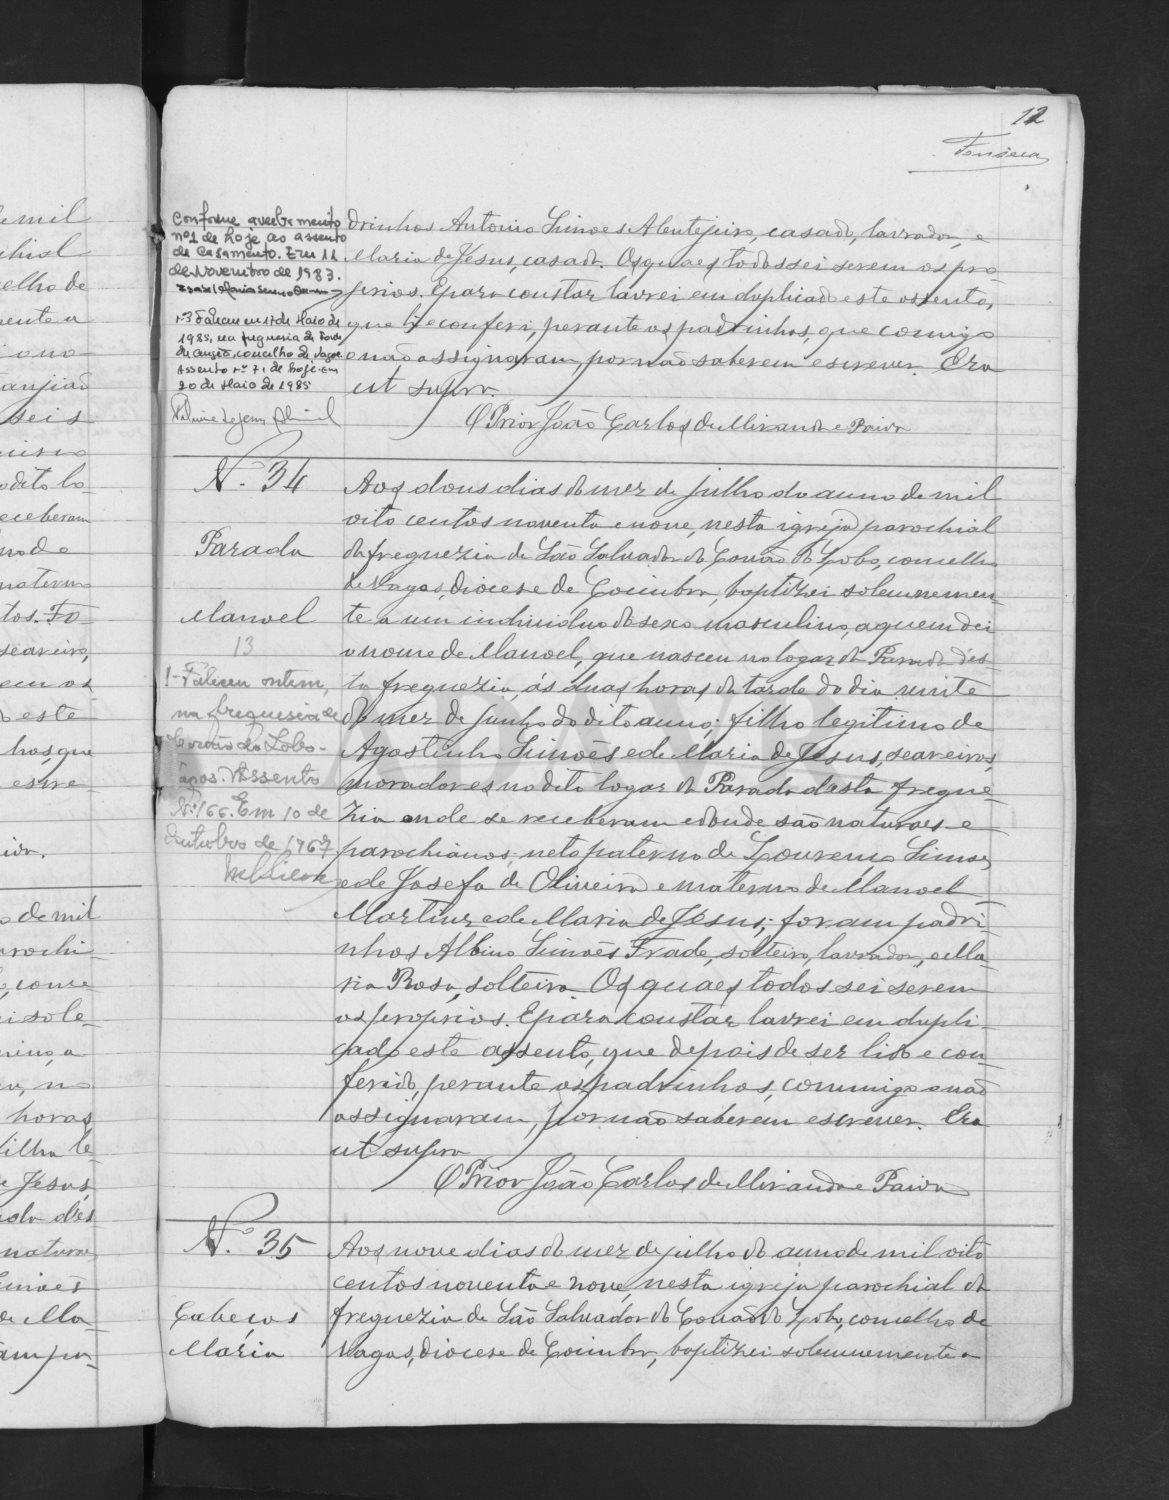 12
Fonseca
Conforme averbamento
nº1 de hoje ao assento
de casamento. Em 11
de Novembro de 1983.
nº3 Faleceu em 17 de Maio de
1985, na freguesia de Fonte
de Angeão, concelho de Vagos.
Assento nº 71 de hoje. Em
20 de Maio de 1985
drinhos Antonio Simões Alentejeiro, casado, lavrador, e
Maria de Jesus, casada. Os quaes todos sei serem os pro
prios. E para constar lavrei em duplicado este assento,
que li e conferi, perante os padrinhos, que comigo
o não assignaram, por não saberem escrever. Era
ut supra.
O Prior João Carlos de Miranda e Paiva
N.º 34
Parada
Manoel
13
1-Faleceu ontem,
na freguesia de
Covão do Lobo-
Vagos. Assento
Nº 166. Em 10 de
Outubro de 1967
Aos dous dias do mez de julho do anno de mil
oito centos noventa e nove, nesta igreja parochial
da freguezia de São Salvador do Covão do Lobo, concelho
de Vagos, diocese de Coimbra, baptizei solemnemen-
te a um individuo do sexo masculino, a quem dei
o nome de Manoel, que nasceu no logar da Parada d'es-
ta freguezia, ás duas horas da tarde do dia vinte
do mez de Junho do dito anno; filho legitimo de
Agostinho Simões e de Maria de Jesus, seareiros,
moradores no dito logar da Parada desta fregue-
zia onde se receberam e donde são naturaes e
parochianos; neto paterno de Lourenço Simões
e de Josefa de Oliveira e materno de Manoel
Martins e de Maria de Jesus; foram padri-
nhos Albino Simões Frade, solteiro, lavrador, e Ma-
ria Rosa, solteira. Os quaes todos sei serem
os proprios. E para constar lavrei em dupli-
cado este assento, que depois de ser lido e con-
ferido, perante os padrinhos, commigo o não
assignaram, por não saberem escrever. Era
ut supra
O Prior João Carlos de Miranda e Paiva
N.º 35
Cabeços
Maria
Aos nove dias do mez de julho do anno de mil oito
centos noventa e nove, nesta igreja parochial da
freguezia de São Salvador do Covão do Lobo, concelho de
Vagos, diocese de Coimbra, baptizei solemnemente a